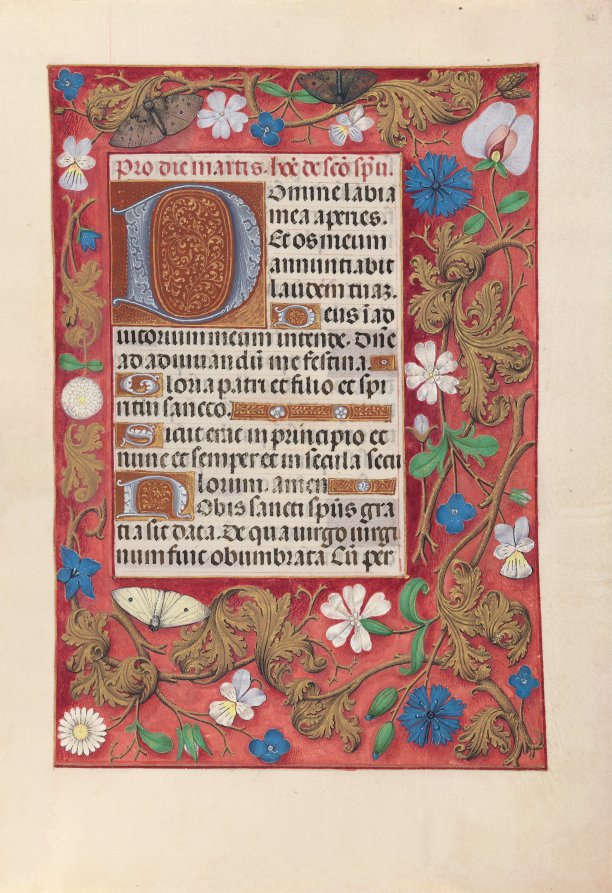 Pro die martis. hoẽ de scõ spũ.
Domine labia
mea aperies.
Et os meum
annunciabit
laudem tuaʒ.
Deus ĩ ad
iutorium meum intende. Dñe
ad adiuuandũ me festina.
Gloria patri et filio et spi
ritui sancto.
Sicut erat in principio et
nunc et semper et in secula secu
lorum. Amen
Nobis sancti spũs gra
tia sit data. De qua uirgo uirgi
num fuit obumbrata Cũ per